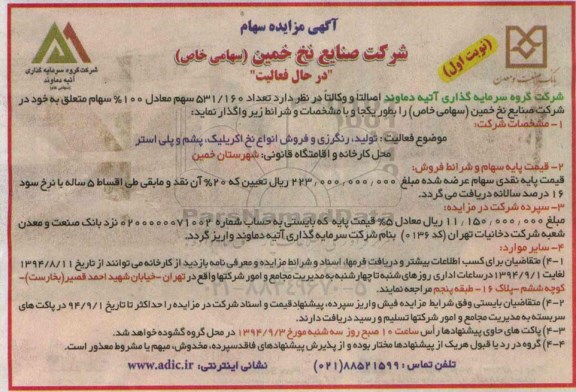 آگهی مزایده سهام
(نوبت اول)
شرکت صنایع نخ خمین (سهامی خاص)
"در حال فعالیت"
شرکت گروه سرمایه گذاری
آتیه دماوند
شرکت گروه سرمایه گذاری آتیه دماوند اصالتاً و وکالتاً در نظر دارد تعداد ۵۳۱/۱۶۰ سهم معادل ۱۰۰% سهام متعلق به خود در
شرکت صنایع نخ خمین (سهامی خاص) را بطور یکجا و با مشخصات و شرایط زیر واگذار نماید:
۱- مشخصات شرکت:
موضوع فعالیت: تولید، رنگرزی و فروش انواع نخ اکریلیک، پشم و پلی استر
محل کارخانه و اقامتگاه قانونی: شهرستان خمین
۲- قیمت پایه سهام و شرائط فروش:
قیمت پایه نقدی سهام عرضه شده مبلغ ۲۲۳,۰۰۰,۰۰۰,۰۰۰ ریال تعیین که ۲۰% آن نقد و مابقی طی اقساط ۵ ساله با نرخ سود
۱۶ درصد سالانه دریافت می گردد.
۳- سپرده شرکت در مزایده:
مبلغ ۱۱,۱۵۰,۰۰۰,۰۰۰ ریال معادل ۵% قیمت پایه که بایستی به حساب شماره ۰۲۰۰۰۰۰۰۷۱۰۰۲ نزد بانک صنعت و معدن
شعبه شرکت دخانیات تهران (کد ۰۱۳۶) بنام شرکت سرمایه گذاری آتیه دماوند واریز گردد.
۴- سایر موارد:
۴-۱) متقاضیان برای کسب اطلاعات بیشتر و دریافت فرمها، اسناد و شرائط مزایده و معرفی نامه بازدید از کارخانه می توانند از تاریخ ۱۳۹۴/۸/۱۱
لغایت ۱۳۹۴/۹/۱ در ساعات اداری روزهای شنبه تا چهارشنبه به مدیریت مجامع و امور شرکتها واقع در تهران -خیابان شهید احمد قصیر(بخارست)-
کوچه ششم -پلاک ۱۶- طبقه پنجم مراجعه نمایند.
۴-۲) متقاضیان بایستی وفق شرایط مزایده فیش واریز سپرده، پیشنهاد قیمت و اسناد شرکت در مزایده را حداکثر تا تاریخ ۹۴/۹/۱ در پاکت های
سربسته به مدیریت مجامع و امور شرکتها تسلیم و رسید دریافت دارند.
۴-۳) پاکت های حاوی پیشنهادها رأس ساعت ۱۰ صبح روز سه شنبه مورخ ۱۳۹۴/۹/۳ در محل گروه گشوده خواهد شد.
۴-۴) گروه در رد یا قبول هریک از پیشنهادها مختار بوده و از پذیرش پیشنهادهای فاقد سپرده، مخدوش، مبهم یا مشروط معذور است.
تلفن تماس : ۸۸۵۲۱۵۹۹(۰۲۱)
نشانی اینترنتی: www.adic.ir